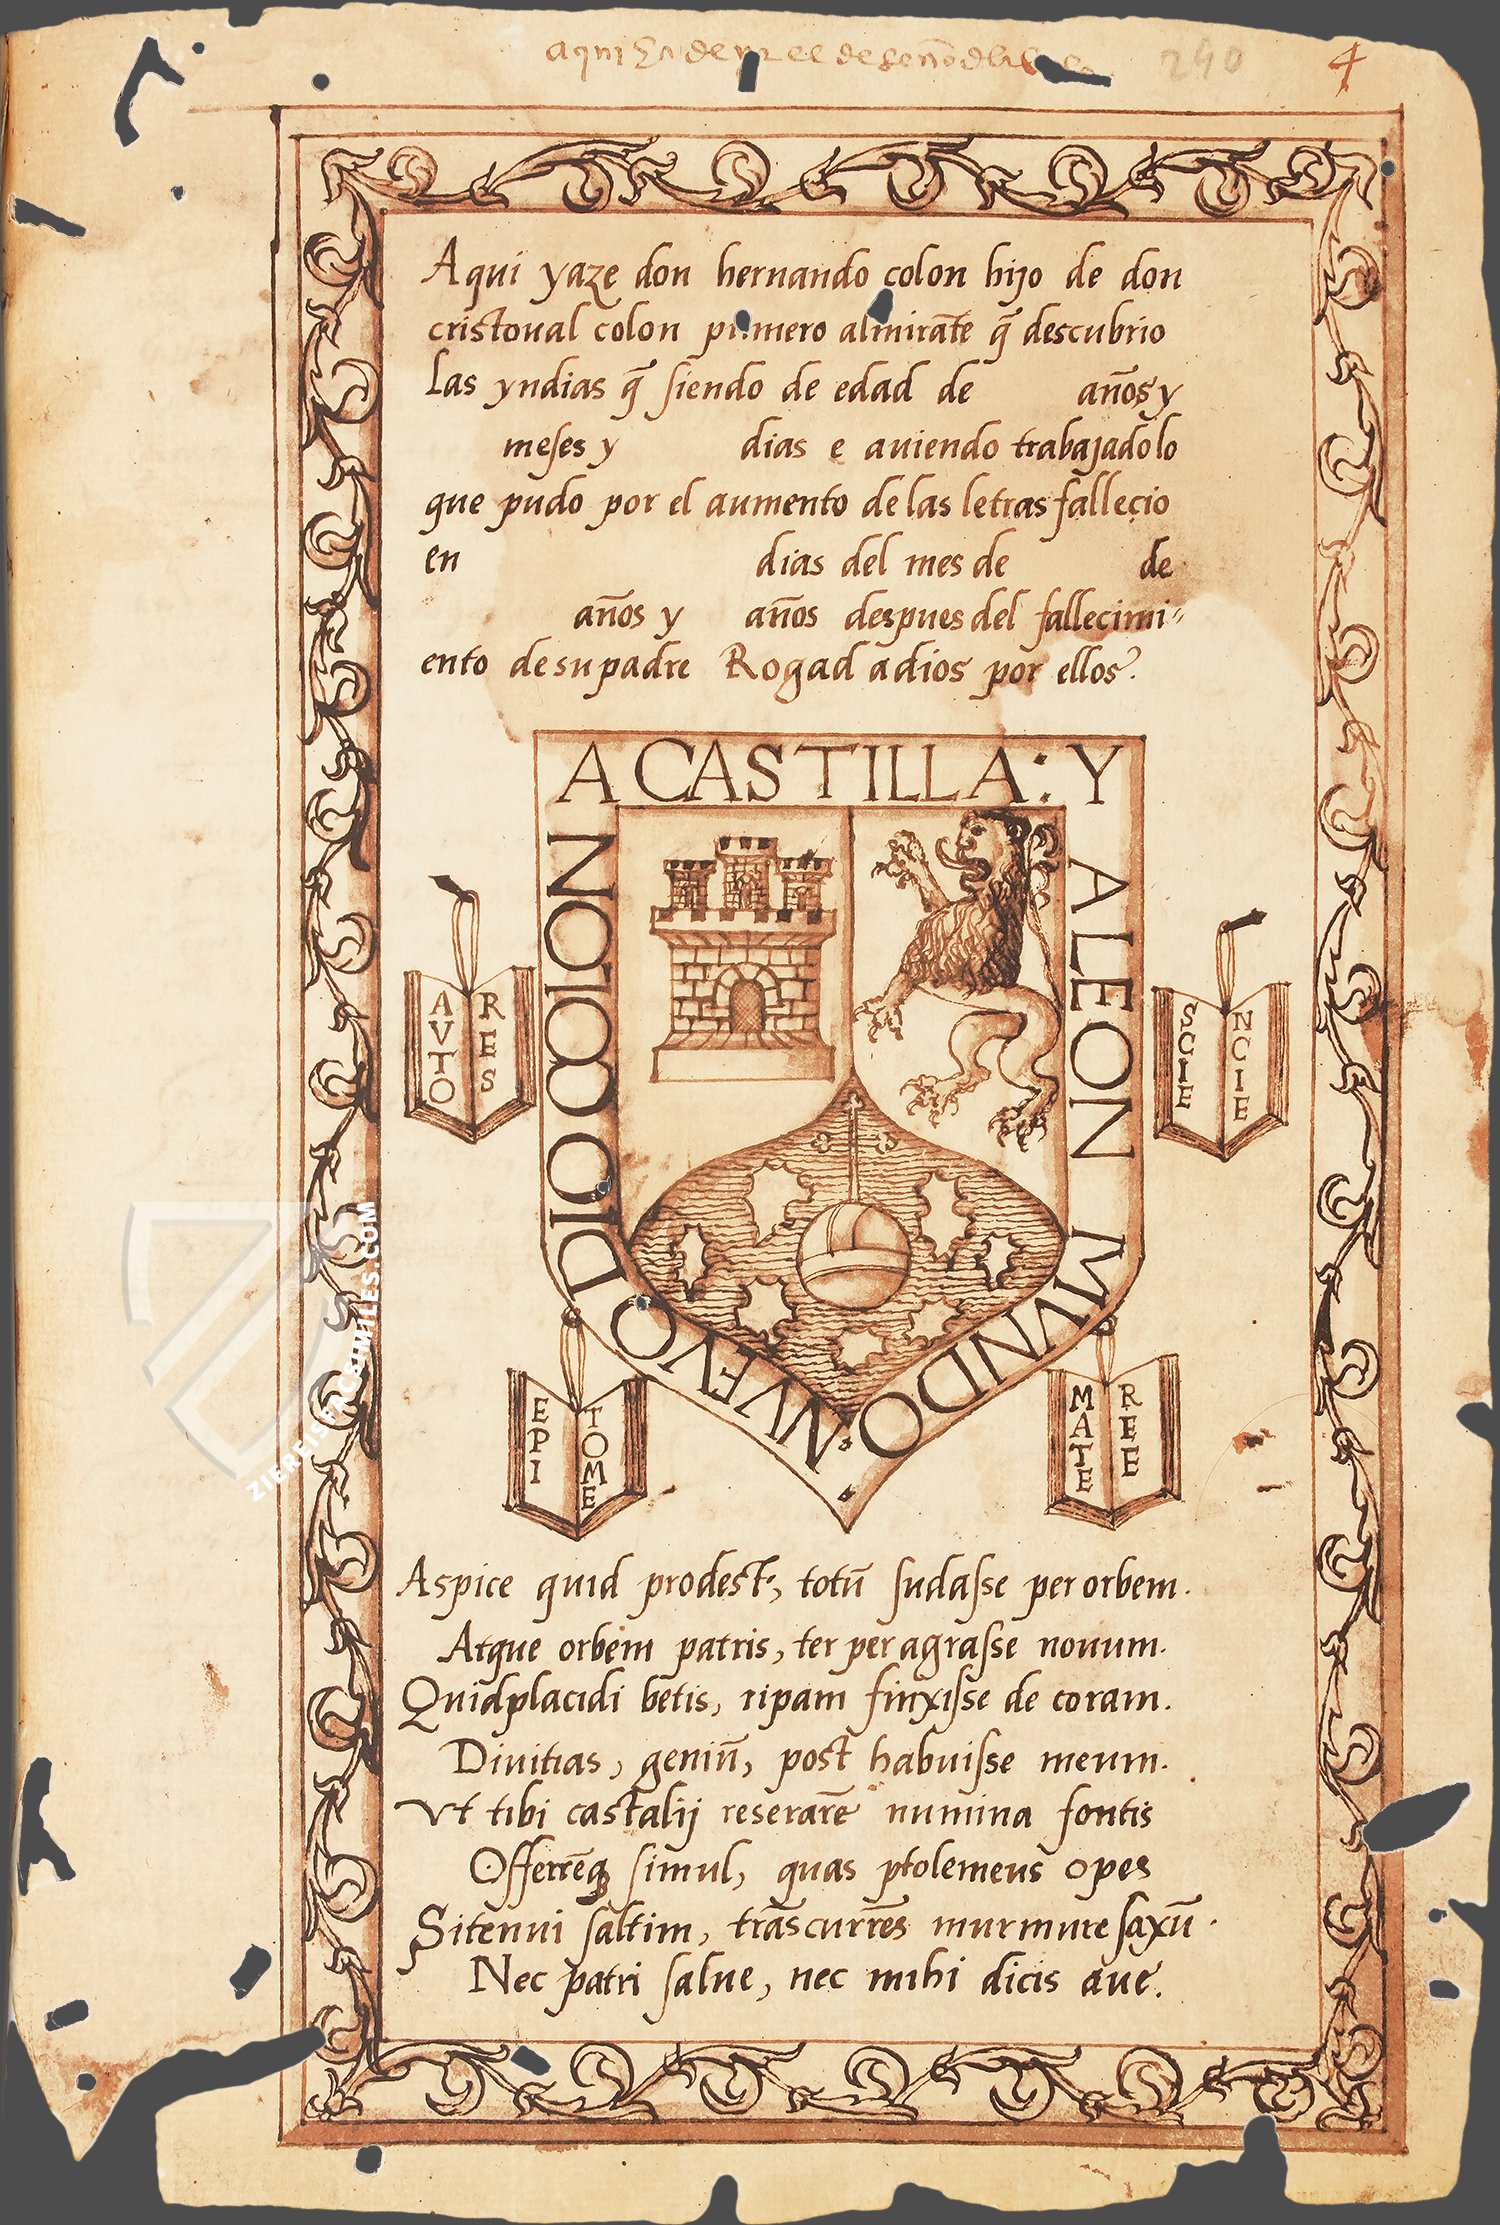 240
4
Aqui yaze don hernando colon hijo de don
cristoual colon primero almirãte q̃ descubrio
Las yndias q̃ ſiendo de edad de años y
meſes y dias e auiendo trabajado lo
que pudo por el aumento de las letras falleçio
en dias del mes de de
años y años despues del fallecimi-
ento de su padre Rogad a dios por ellos.
A CASTILLA: Y
A LEON
MVNDO
NVEVO
DIO
COLON
AVTO
RES
SCIE
NCIE
EPI
TOME
MATE
REE
Aspice quid prodest, totũ ſudaſse per orbem.
Atque orbem patris, ter per agraſse nouum.
Quid placidi betis, ripam finxiſse decoram.
Diuitias, geniũ, post habuiſse meum.
Vt tibi castalij reserarẽ numina fontis
Offerrẽq; simul, quas ptolemeus opes
Si tenui ſaltim, trãscurrẽs murmure ſaxũ.
Nec patri ſalue, nec mihi dicis aue.
ZIEREISFACSIMILES.COM